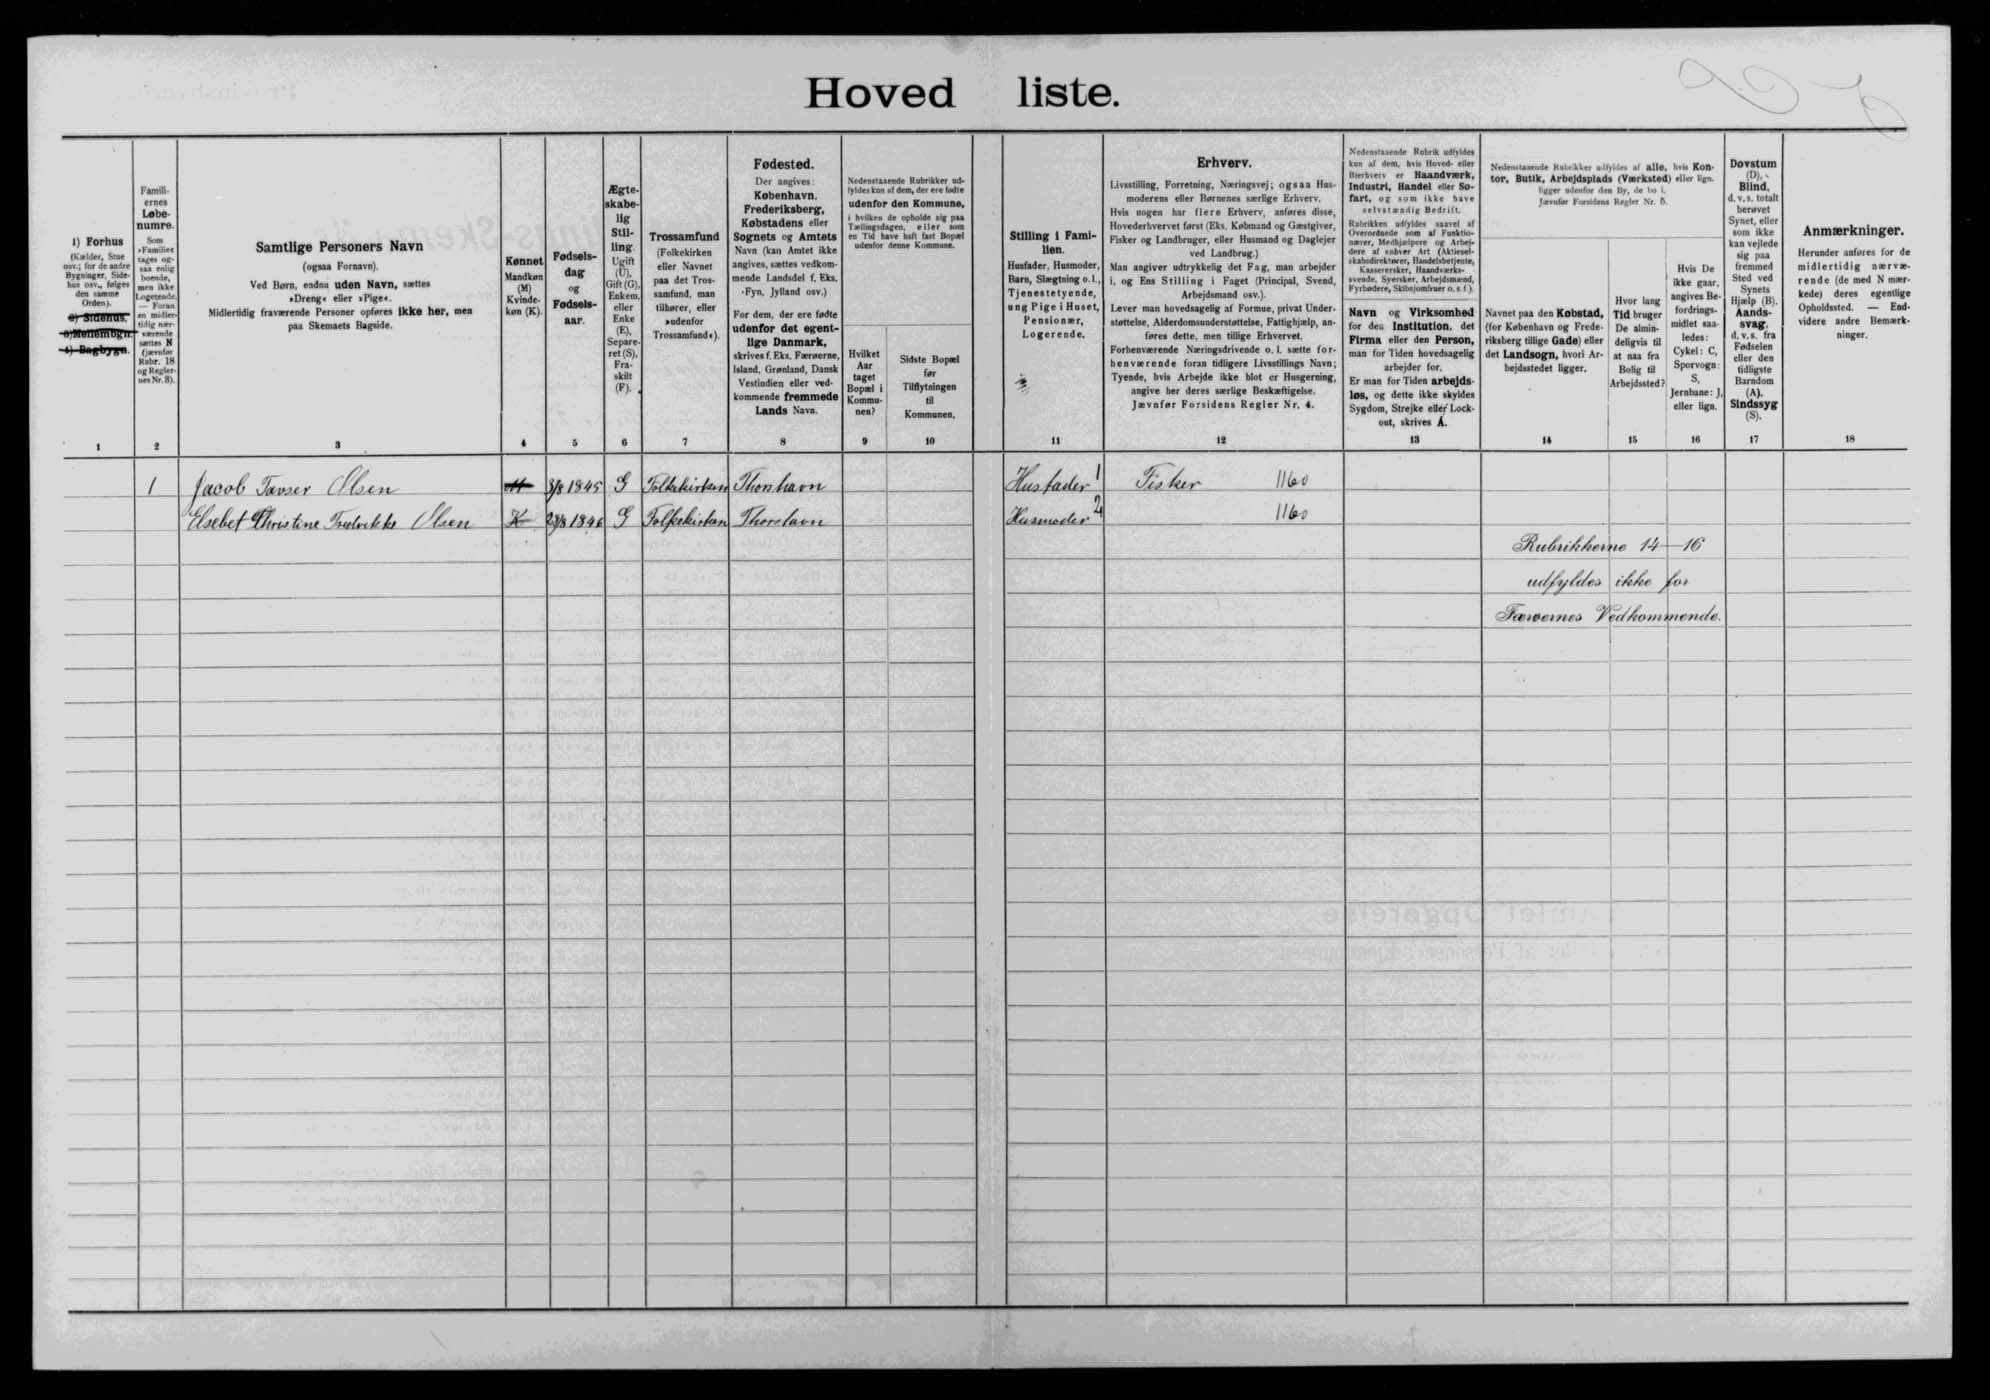 Hoved liste.
1) Forhus
(Kælder, Stue
osv.; for de andre
Bygninger, Side-
hus osv., følges
den samme
Orden).
2) Sidehus.
3) Mellembgn.
4) Bagbygn.
1
Famili-
ernes
Løbe-
numre.
Som
»Familie«
tages og-
saa enlig
boende,
men ikke
Logerende.
— Foran
en midler-
tidig nær-
værende
sættes N
(jævnfør
Rubr. 18
og Regler-
nes Nr. 3).
2
Samtlige Personers Navn
(ogsaa Fornavn).
Ved Børn, endnu uden Navn, sættes
»Dreng« eller »Pige«.
Midlertidig fraværende Personer opføres ikke her, men
paa Skemaets Bagside.
3
Kønnet
Mandkøn
(M)
Kvinde-
køn (K).
4
Fødsels-
dag
og
Fødsels-
aar.
5
Ægte-
skabe-
lig
Stil-
ling.
Ugift
(U),
Gift (G),
Enkem.
eller
Enke
(E),
Separe-
ret (S),
Fra-
skilt
(F).
6
Trossamfund
(Folkekirken
eller Navnet
paa det Tros-
samfund, man
tilhører, eller
»udenfor
Trossamfund«).
7
Fødested.
Der angives:
København,
Frederiksberg,
Købstadens eller
Sognets og Amtets
Navn (kan Amtet ikke
angives, sættes vedkom-
mende Landsdel f. Eks.
Fyn, Jylland osv.)
For dem, der ere fødte
udenfor det egent-
lige Danmark,
skrives f. Eks. Færøerne,
Island, Grønland, Dansk
Vestindien eller ved-
kommende fremmede
Lands Navn.
8
Nedenstaaende Rubrikker ud-
fyldes kun af dem, der ere fødte
udenfor den Kommune,
i hvilken de opholde sig paa
Tællingsdagen, eller som
en Tid have haft fast Bopæl
udenfor denne Kommune.
Hvilket
Aar
taget
Bopæl i
Kommu-
nen?
9
Sidste Bopæl
før
Tilflytningen
til
Kommunen.
10
Stilling i Fami-
lien.
Husfader, Husmoder,
Barn, Slægtning o.l.,
Tjenestetyende,
ung Pige i Huset,
Pensionær,
Logerende.
11
Erhverv.
Livsstilling, Forretning, Næringsvej; ogsaa Hus-
moderens eller Børnenes særlige Erhverv.
Hvis nogen har flere Erhverv, anføres disse,
Hovederhvervet først (Eks. Købmand og Gæstgiver,
Fisker og Landbruger, eller Husmand og Daglejer
ved Landbrug.)
Man angiver udtrykkelig det Fag, man arbejder
i, og Ens Stilling i Faget (Principal, Svend,
Arbejdsmand osv.).
Lever man hovedsagelig af Formue, privat Under-
støttelse, Alderdomsunderstøttelse, Fattighjælp, an-
føres dette, men tillige Erhvervet.
Forhenværende Næringsdrivende o. l. sætte for-
henværende foran tidligere Livsstillings Navn;
Tyende, hvis Arbejde ikke blot er Husgerning,
angive her deres særlige Beskæftigelse.
Jævnfør Forsidens Regler Nr. 4.
12
Nedenstaaende Rubrik udfyldes
kun af dem, hvis Hoved- eller
Bierhverv er Haandværk,
Industri, Handel eller Sø-
fart, og som ikke have
selvstændig Bedrift.
Rubrikken udfyldes saavel af
Overordnede som af Funktio-
nærer, Medhjælpere og Arbej-
dere af enhver Art (Aktiesel-
skabsdirektører, Handelsbetjente,
Kasserersker, Haandværks-
svende, Syersker, Arbejdsmænd,
Fyrbødere, Skibsjomfruer o. s. f.).
Navn og Virksomhed
for den Institution, det
Firma eller den Person,
man for Tiden hovedsagelig
arbejder for.
Er man for Tiden arbejds-
løs, og dette ikke skyldes
Sygdom, Strejke eller Lock-
out, skrives A.
13
Nedenstaaende Rubrikker udfyldes af alle, hvis Kon-
tor, Butik, Arbejdsplads (Værksted) eller lign.
ligger udenfor den By, de bo i.
Jævnfør Forsidens Regler Nr. 5.
Navnet paa den Købstad,
(for København og Frede-
riksberg tillige Gade) eller
det Landsogn, hvori Ar-
bejdsstedet ligger.
14
Hvor lang
Tid bruger
De almin-
deligvis til
at naa fra
Bolig til
Arbejdssted?
15
Hvis De
ikke gaar,
angives Be-
fordrings-
midlet saa-
ledes:
Cykel: C,
Sporvogn:
S,
Jernbane: J,
eller lign.
16
Døvstum
(D),
Blind,
d. v. s. totalt
berøvet
Synet, eller
som ikke
kan vejlede
sig paa
fremmed
Sted ved
Synets
Hjælp (B).
Aands-
svag,
d. v. s. fra
Fødselen
eller den
tidligste
Barndom
(A).
Sindssyg
(S).
17
Anmærkninger.
Herunder anføres for de
midlertidig nærvæ-
rende (de med N mær-
kede) deres egentlige
Opholdssted. — End-
videre andre Bemærk-
ninger.
18
1 Jacob Tavser Olsen M 3/8 1845 G Folkekirken Thorshavn Husfader 1 Fisker 1160
Elsebet Christine Fredrikke Olsen K 1846 G Folkekirken Thorshavn Husmoder 2 1160
Rubrikkerne 14-16
udfyldes ikke for
Færøernes Vedkommende.